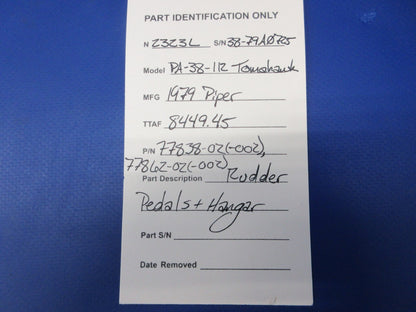 PART IDENTIFICATION ONLY
N 2323L S/N 38-79A0725
Model PA-38-112 Tomahawk
MFG 1979 Piper
TTAF 8449.45
P/N 77838-02(-002),
77862-02(-002)
Part Description Rudder
Pedals + Hangar
Part S/N
Date Removed